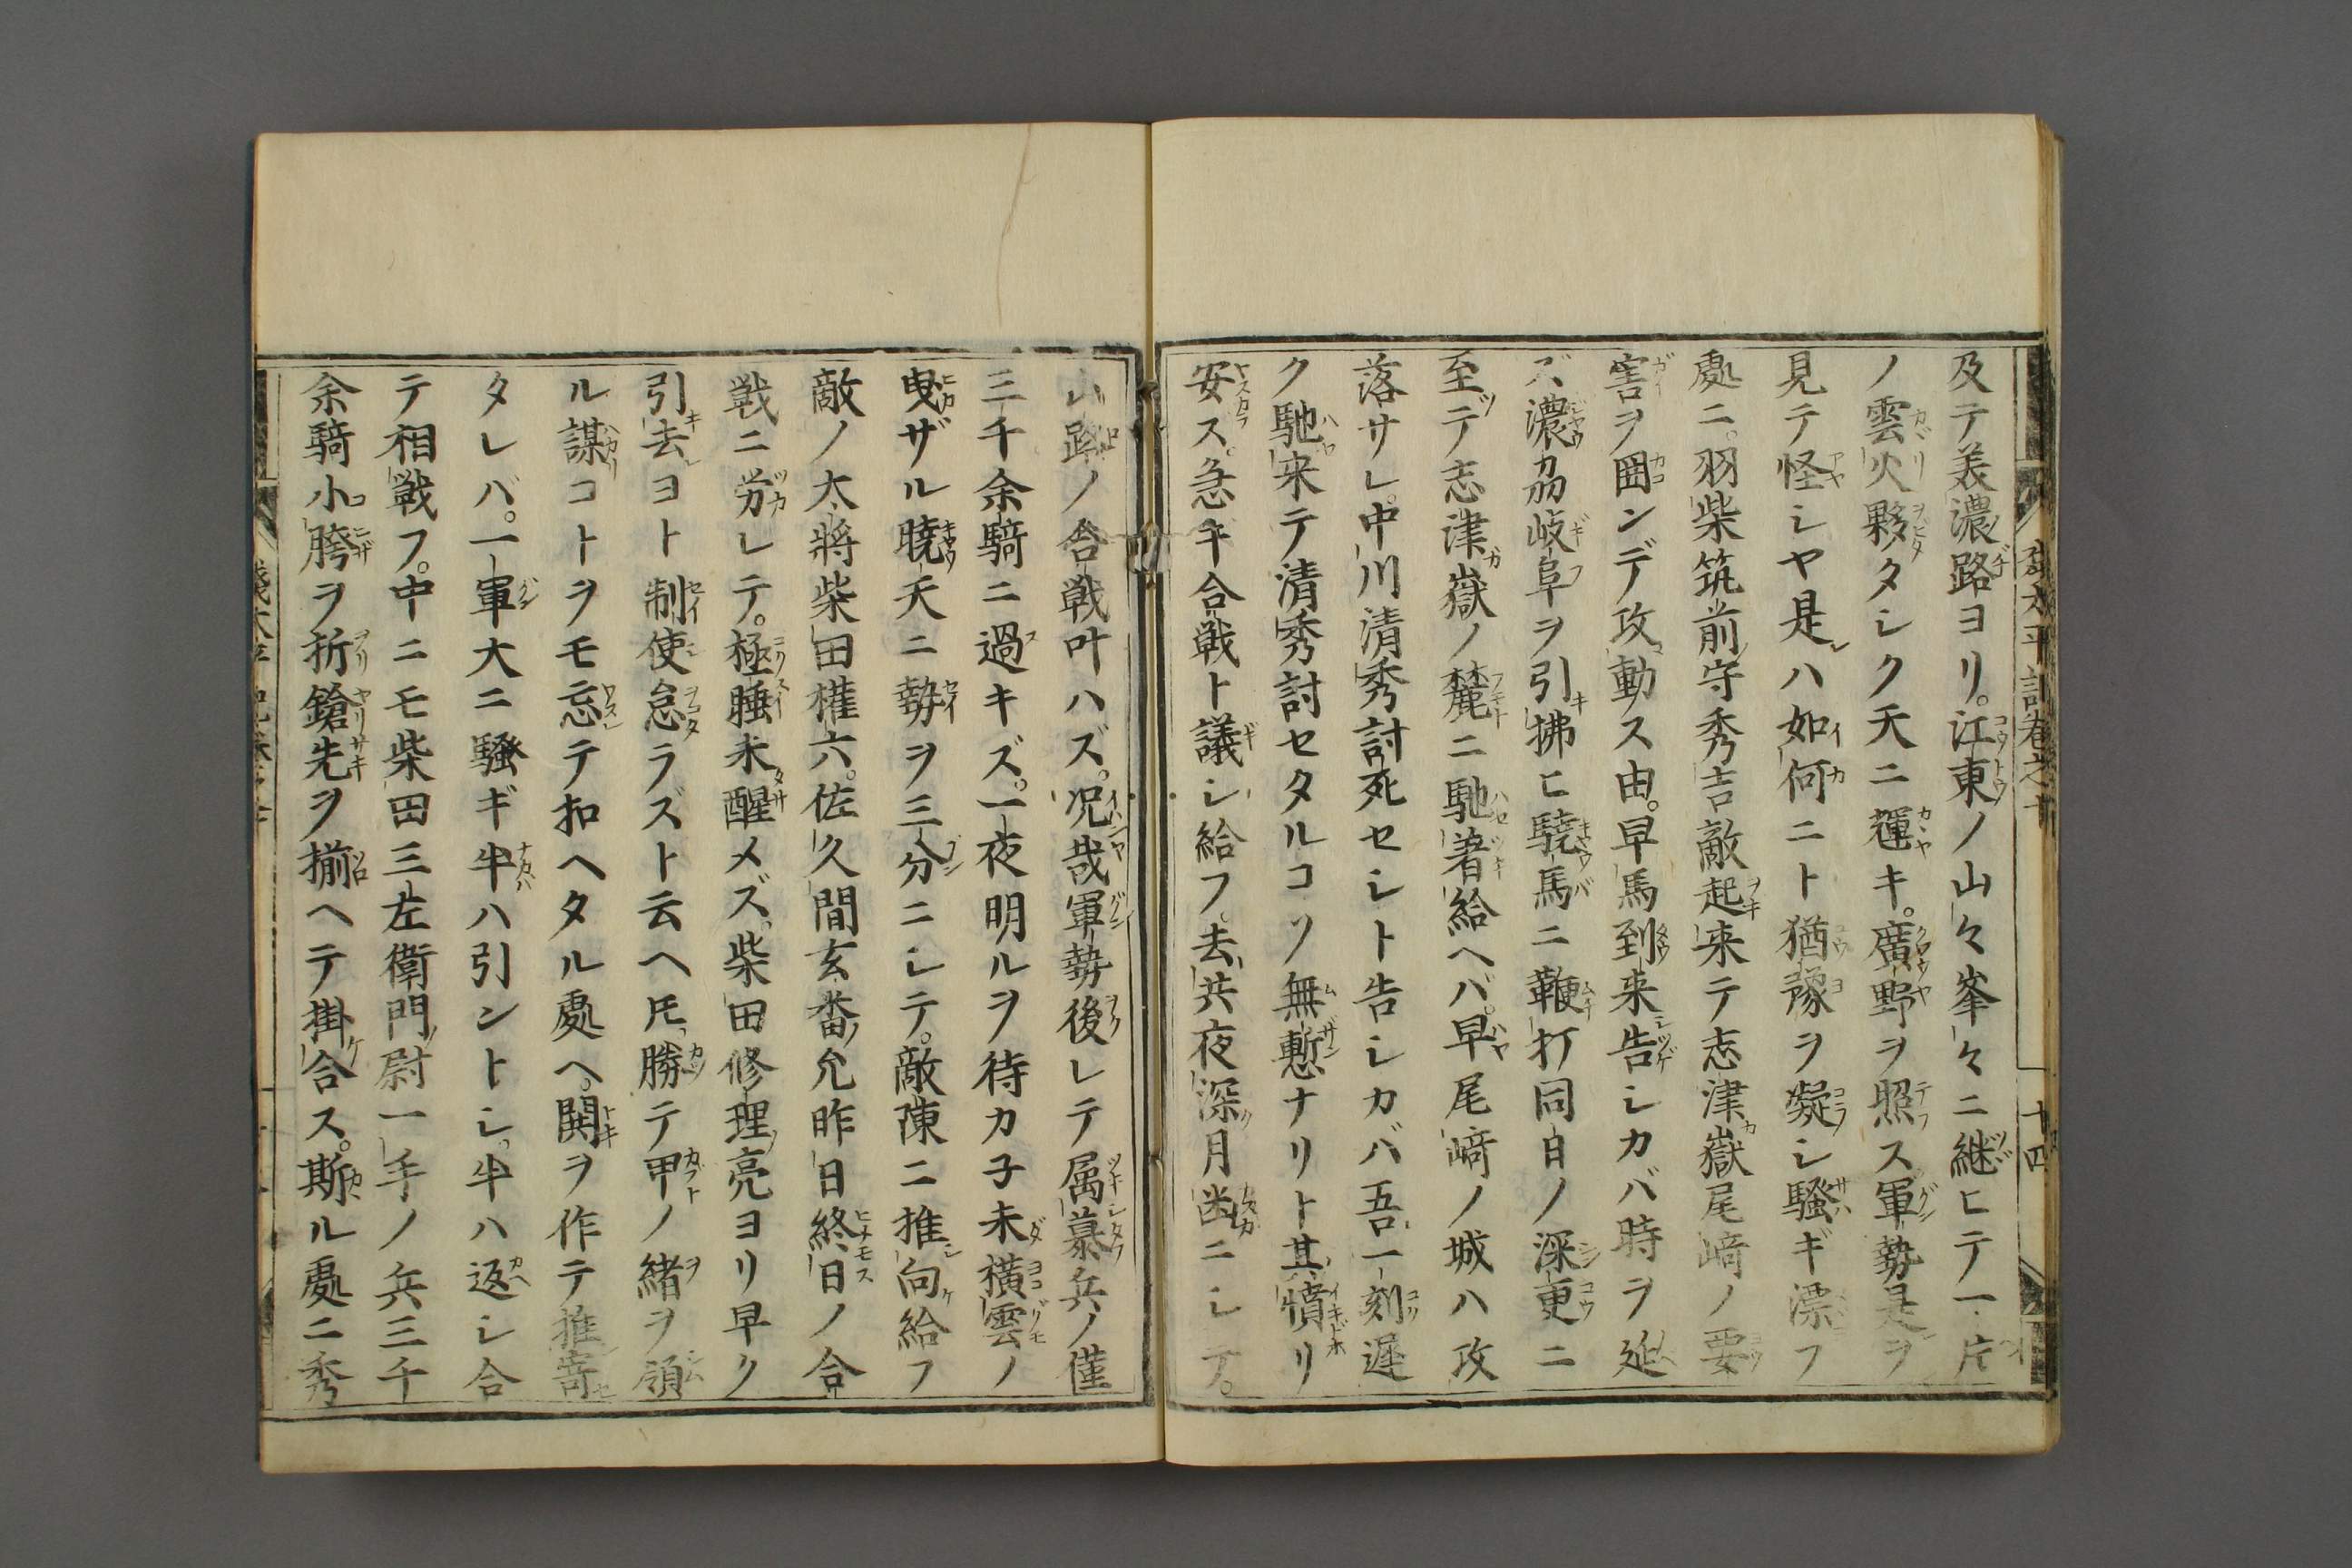 及テ美濃路ヨリ。江東ノ山々峯々ニ継ヒテ一片
ノ雲火夥タシク天ニ輝キ。廣野ヲ照ス軍勢是ヲ
見テ怪シヤ是ハ如何ニト猶豫ヲ凝シ騒ギ漂フ
處ニ。羽柴筑前守秀吉敵起来テ志津嶽尾﨑ノ要
害ヲ囲ンデ攻動ス由。早馬到来告シカバ時ヲ延
ズ濃刕岐阜ヲ引拂ヒ驍馬ニ鞭打同日ノ深更ニ
至テ志津嶽ノ麓ニ馳着給ヘバ。早尾﨑ノ城ハ攻
落サレ。中川清秀討死セシト告シカバ吾一刻遅
ク馳来テ清秀討セタルコソ無慙ナリト其憤リ
安ス。急ギ合戦ト議シ給フ。去共夜深月幽ニシテ。
山路ノ合戦叶ハズ。况哉軍勢後レテ属慕兵ノ僅
三千余騎ニ過キズ。一夜明ルヲ待カ子未横雲ノ
曳ザル曉天ニ勢ヲ三分ニシテ。敵陳ニ推向給フ
敵ノ大將柴田權六。佐久間玄番允昨日終日ノ合
戦ニ労レテ。極睡未醒メズ。柴田修理亮ヨリ早ク
引去ヨト制使怠ラズト云ヘ𪜈、勝テ甲ノ緒ヲ領
ル謀コトヲモ忘テ扣ヘタル處ヘ。鬨ヲ作テ推寄
タレバ。一軍大ニ騒ギ半ハ引ントシ。半ハ返シ合
テ相戦フ。中ニモ柴田三左衛門尉一手ノ兵三千
余騎小膝ヲ折鎗先ヲ揃ヘテ掛合ス。斯ル處ニ秀
十四